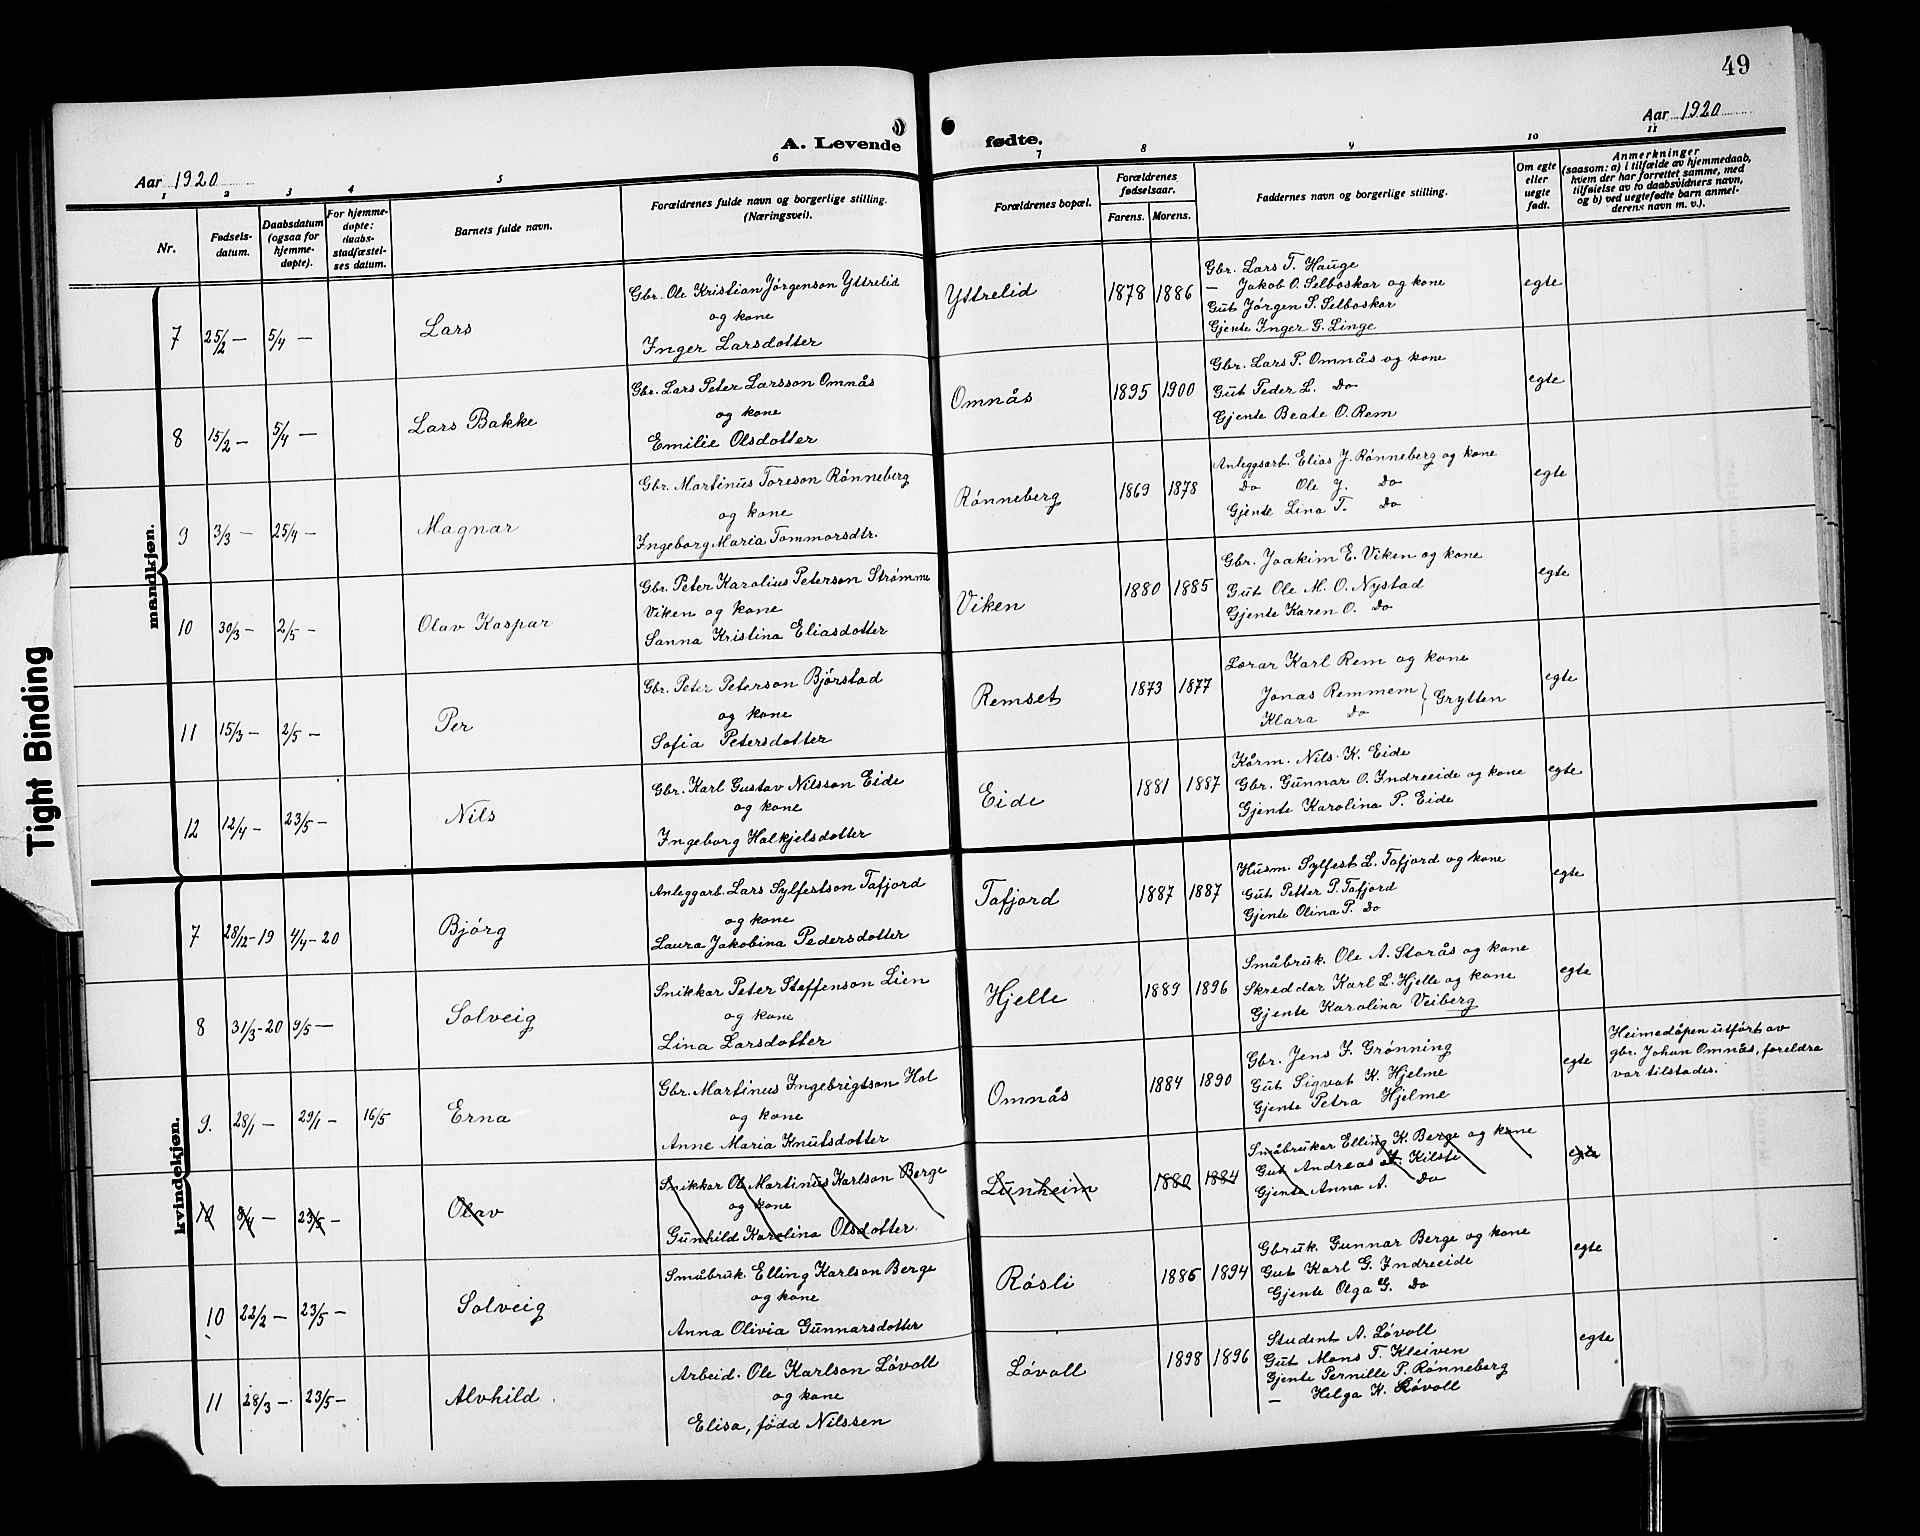 49
Aar 1920
A. Levende fødte.
Aar 1920
1 2 3 4 5 6 7 8 9 10 11
Nr.
Fødsels-
datum.
Daabsdatum
(ogsaa for
hjemme-
døpte).
For hjemme-
døpte:
daabs-
stadfæstel-
ses datum.
Barnets fulde navn.
Forældrenes fulde navn og borgerlige stilling.
(Næringsvei).
Forældrenes bopæl.
Forældrenes
fødselsaar.
Farens. Morens.
Faddernes navn og borgerlige stilling.
Om egte
eller
uegte
født.
Anmerkninger
(saasom: a) i tilfælde av hjemmedaab,
hvem der har forrettet samme, med
tilføielse av to daabsvidners navn,
og b) ved uegtefødte barn anmel-
derens navn m. v.).
mandkjøn.
7 25/2 — 5/4 — Lars
Gbr. Ole Kristian Jørgenson Yttrelid
og kone
Inger Larsdotter
Yttrelid 1878 1886
Gbr. Lars T. Hauge
— Jakob O. Selboskar og kone
Gut Jørgen S. Selboskar
Gjente Inger G. Linge
egte
8 15/2 — 5/4 — Lars Bakke
Gbr. Lars Peter Larsson Omnås
og kone
Emilie Olsdotter
Omnås 1895 1900
Gbr. Lars P. Omnås og kone
Gut Peder L. Do
Gjente Beate O. Rem
egte
9 3/3 — 25/4 — Magnar
Gbr. Martinus Toreson Rønneberg
og kone
Ingeborg Maria Tommorsdtr.
Rønneberg 1869 1878
Anleggsarb. Elias J. Rønneberg og kone
Do Ole J. Do
Gjente Lina T. Do
egte
10 30/3 — 2/5 — Olav Kaspar
Gbr. Peter Karolius Peterson Strømme
Viken og kone
Sanna Kristina Eliasdotter
Viken 1880 1885
Gbr. Joakim E. Viken og kone
Gut Ole M. O. Nystad
Gjente Karen O. Do
egte
11 15/3 — 2/5 — Per
Gbr. Peter Peterson Bjørstad
og kone
Sofia Petersdotter
Remset 1873 1877
Lorar Karl Rem og kone
Jonas Remmem } Grytten
Klara Do
egte
12 12/4 — 23/5 — Nils
Gbr. Karl Gustav Nilsson Eide
og kone
Ingeborg Halkjelsdotter
Eide 1881 1887
Kårm. Nils K. Eide
Gbr. Gunnar O. Indreeide og kone
Gjente Karolina P. Eide
egte
kvindekjøn.
7 28/12-19 4/4-20 Bjørg
Anleggarb. Lars Sylfestson Tafjord
og kone
Laura Jakobina Pedersdotter
Tafjord 1887 1887
Husm. Sylfest L. Tafjord og kone
Gut Petter P. Tafjord
Gjente Olina P. Do
egte
8 31/3-20 9/5 — Solveig
Snikkar Peter Steffenson Lien
og kone
Lina Larsdotter
Hjelle 1889 1896
Småbruk. Ole A. Storås og kone
Skreddar Karl L. Hjelle og kone
Gjente Karolina Veiberg
egte
9. 28/1 — 29/1 — 16/5 Erna
Gbr. Martinus Ingebrigtson Hol
og kone
Anne Maria Knutsdotter
Omnås 1884 1890
Gbr. Jens J. Grønning
Gut Sigvat K. Hjelme
Gjente Petra Hjelme
egte
Heimedåpen utført av
gbr. Johan Omnås, foreldra
var tilstades.
10 8/4 23/5 — Olav
Snikkar Ole Martinus Karlson Berge
og kone
Gunhild Karolina Olsdotter
Lunheim 1880 1884
Småbrukar Elling K. Berge og kone
Gut Andreas Kilsti
Gjente Anna A. Do
egte
10 22/2 — 23/5 — Solveig
Småbruk. Elling Karlson Berge
og kone
Anna Olivia Gunnarsdotter
Røsli 1885 1894
Gbruk. Gunnar Berge og kone
Gut Karl G. Indreeide
Gjente Olga G. Do
egte
11 28/3 — 23/5 — Alvhild
Arbeid. Ole Karlson Løvoll
og kone
Elisa, fødd Nilssen
Løvoll 1898 1896
Student A. Løvoll
Gut Mons T. Kleiven
Gjente Pernille P. Rønneberg
— Helga K. Løvoll
egte
Tight Binding